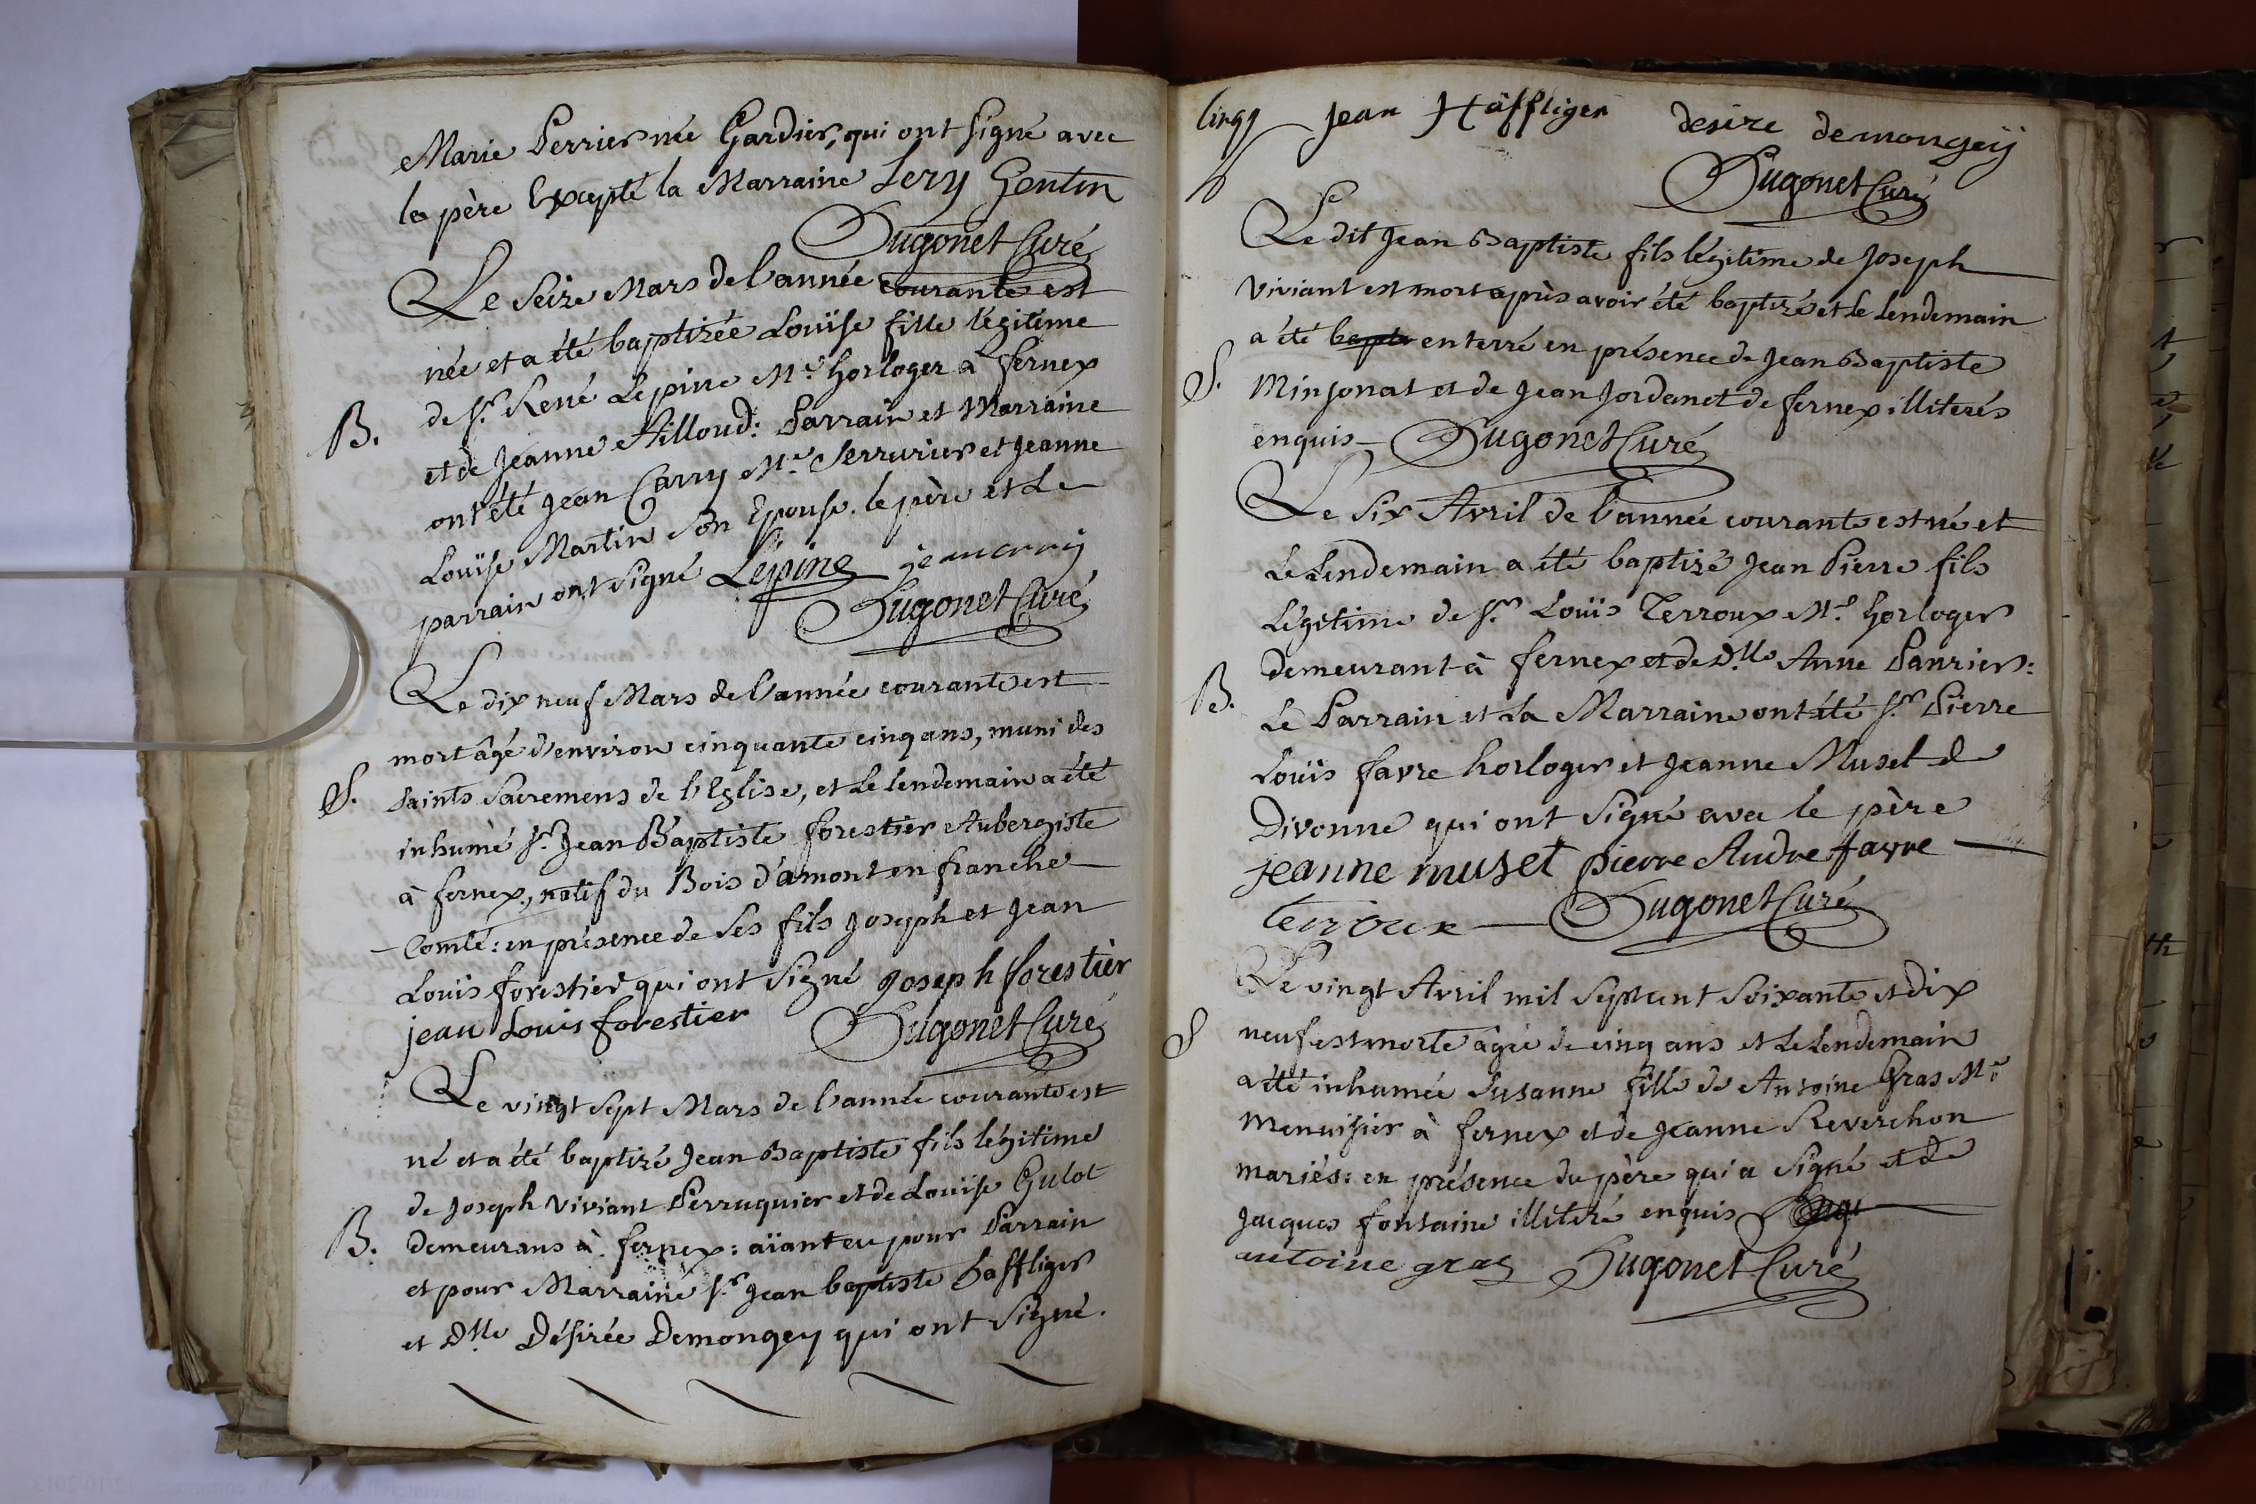 Marie Perrier née Gardier, qui ont signé avec
le père Excepté la Marraine Lery Gentin
Dugonet Curé
Le Seize Mars de l'année courante est
née et a été baptizée Louïse fille légitime
de Sr. René Lepine Me. horloger à fernex
et de Jeanne Ailloud: Parrain et Marraine
B.
ont été Jean Carry Me. Serrurier et Jeanne
Louïse Martin Son Epouse. le père et Le
parrain ont signé Lépine jean carry
Dugonet Curé
Le dix neuf Mars de l'année courante est
mort âgé d'environ cinquante cinq ans, muni des
S.
Saints Sacremens de l'Eglise, et Le lendemain a été
inhumé Sr. Jean Baptiste forestier Aubergiste
à fernex, natif du Bois d'amont en franche
Comté: en présence de Ses fils Joseph et Jean
Louis forestier qui ont Signé joseph forestier
jean Louis forestier
Dugonet Curé
Le vingt sept Mars de l'année courante est
né et a été baptizé Jean Baptiste fils légitime
de Joseph Viviant Perruquier et de Louïse Gulot
B.
demeurans à fernex: aïant eu pour Parrain
et pour Marraine Sr. Jean baptiste haffliger
et Dlle Désirée Demongey qui ont Signé.
Jean Häffliger desire demongeÿ
Dugonet Curé
Le dit Jean Baptiste fils légitime de Joseph
Viviant est mort après avoir été baptizé et Le Lendemain
a été bapti enterré en présence de Jean Baptiste
S.
Minjonat et de Jean Jordanet de fernex illiterés
enquis Dugonet Curé
Le Six Avril de l'année courante est né et
Le Lendemain a été baptizé Jean Pierre fils
Légitime de Sr. Louïs Terroux Me. horloger
demeurant à fernex et de Dlle Anne Panrier:
B.
Le Parrain et La Marraine ont été Sr. Pierre
Louïs favre horloger et Jeanne Muset de
Divonne qui ont Signé avec le père
jeanne muset pierre Andre favre
terroux Dugonet Curé
Le vingt Avril mil Sept cent Soixante et dix
S
neuf est morte âgée de cinq ans et Le Lendemain
a été inhumée Susanne fille de Antoine Gras Me.
Menuisier à fernex et de Jeanne Reverchon
mariés: en présence du père qui a Signé et de
Jacques fontaine illiteré enquis
antoine gras Dugonet Curé